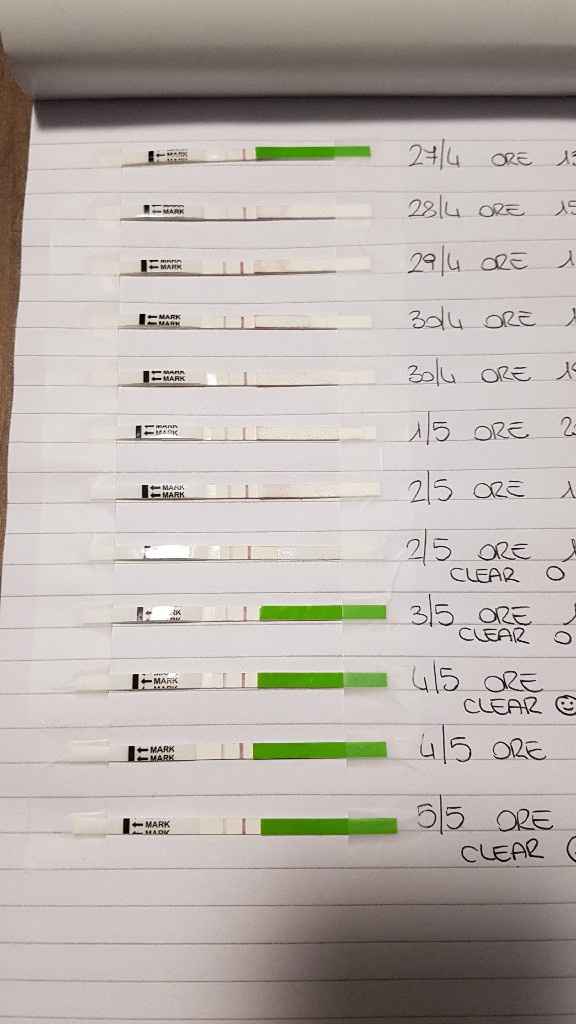 MARK
MARK
27/4 ORE 13
MARK
MARK
28/4 ORE 15
MARK
MARK
29/4 ORE 1
MARK
MARK
30/4 ORE 1
MARK
MARK
30/4 ORE
MARK
MARK
1/5 ORE 2
MARK
MARK
2/5 ORE 1
2/5 ORE 1
CLEAR O
3/5 ORE 1
CLEAR O
MARK
MARK
4/5 ORE
CLEAR ☺
MARK
MARK
4/5 ORE
MARK
MARK
5/5 ORE
CLEAR